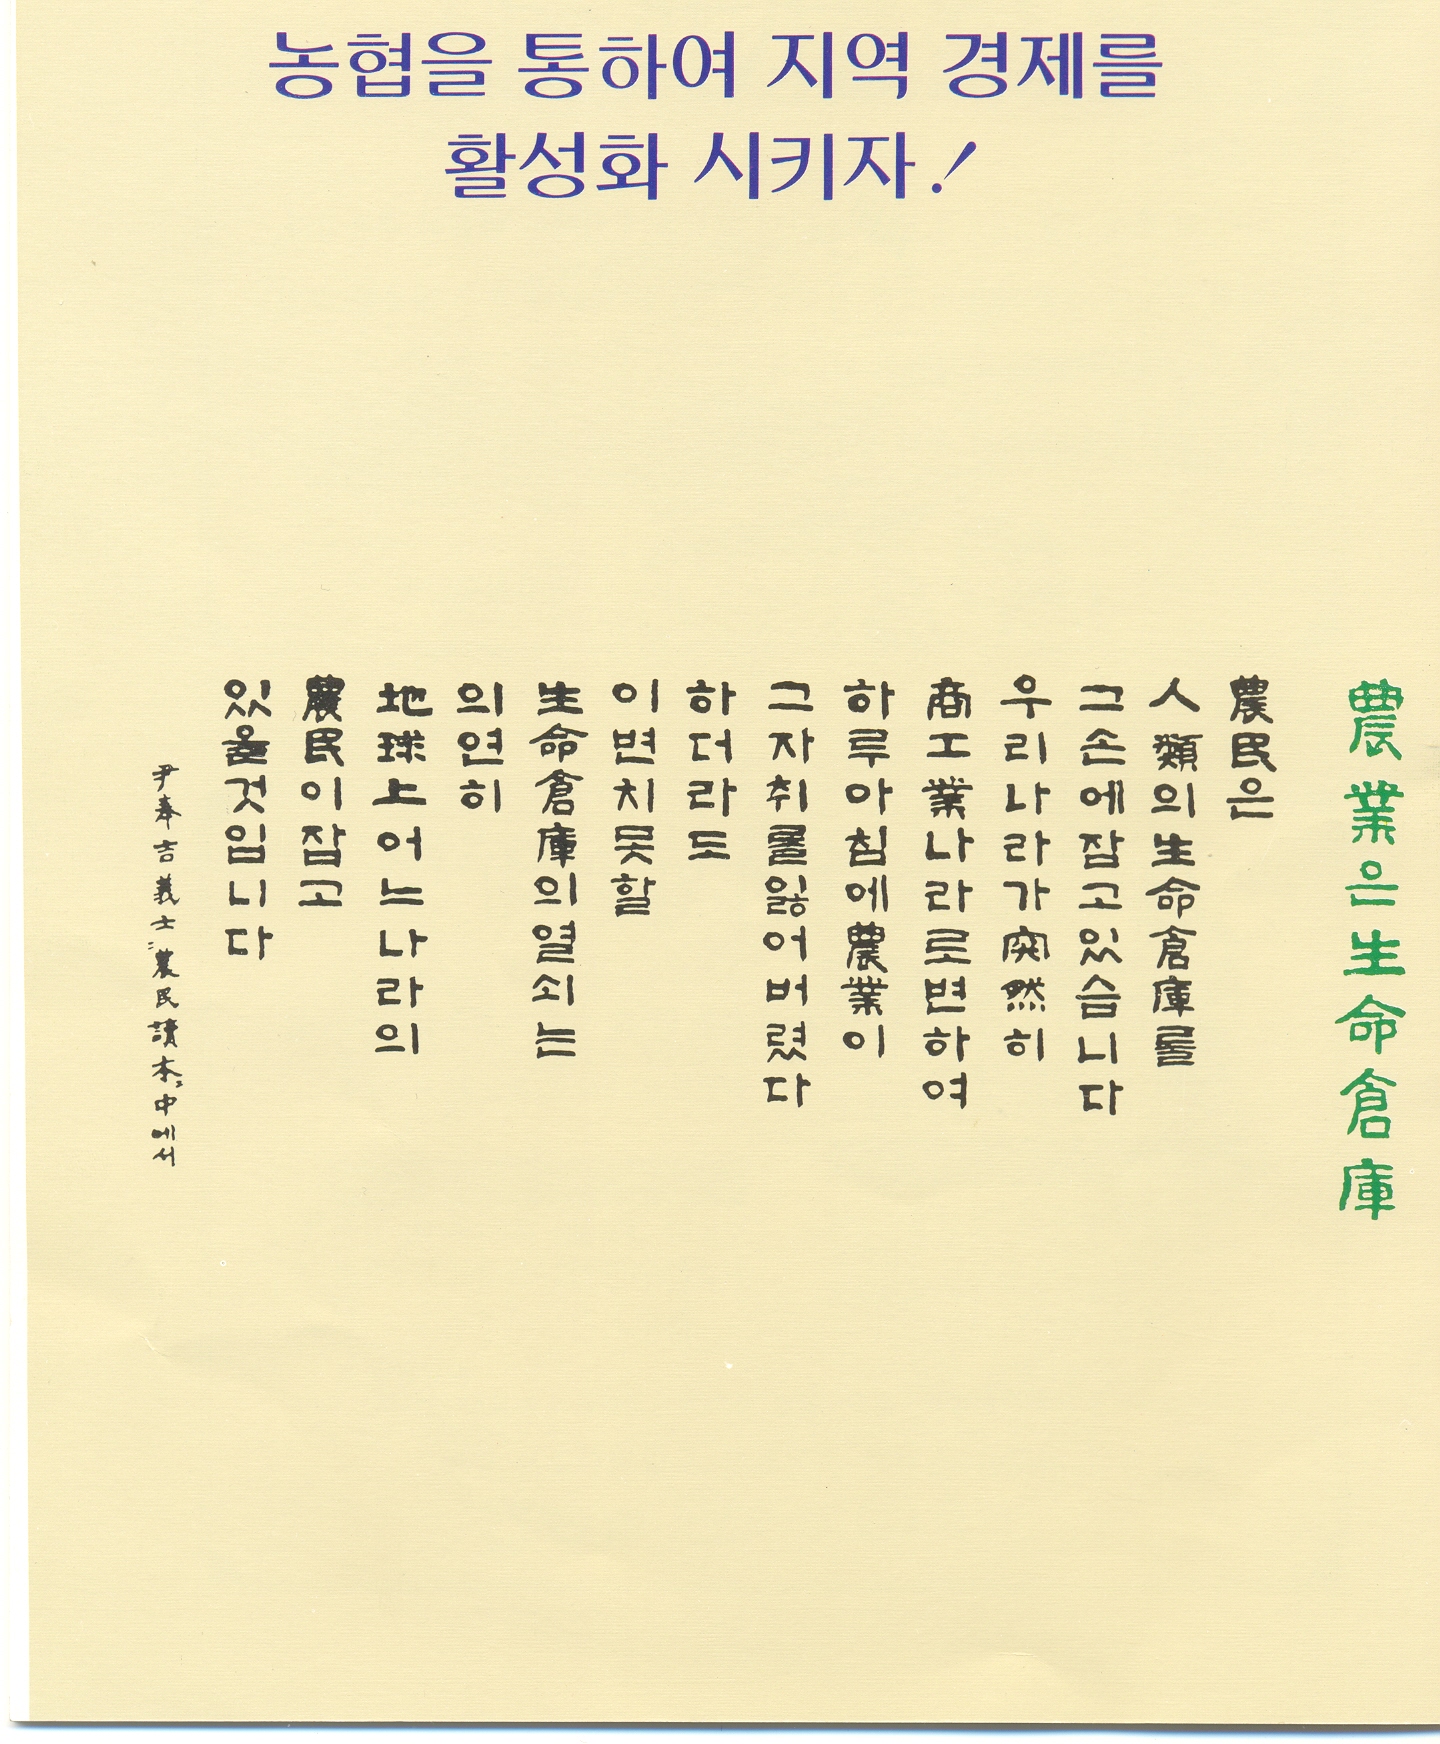 농협을 통하여 지역 경제를
활성화 시키자!
農業은生命倉庫
農民은
人類의生命倉庫를
그손에잡고있습니다
우리나라가突然히
商工業나라로변하여
하루아침에農業이
그자취를잃어버렸다
하더라도
이변치못할
生命倉庫의열쇠는
의연히
地球上어느나라의
農民이잡고
있을것입니다
尹奉吉義士〝農民讀本〟中에서